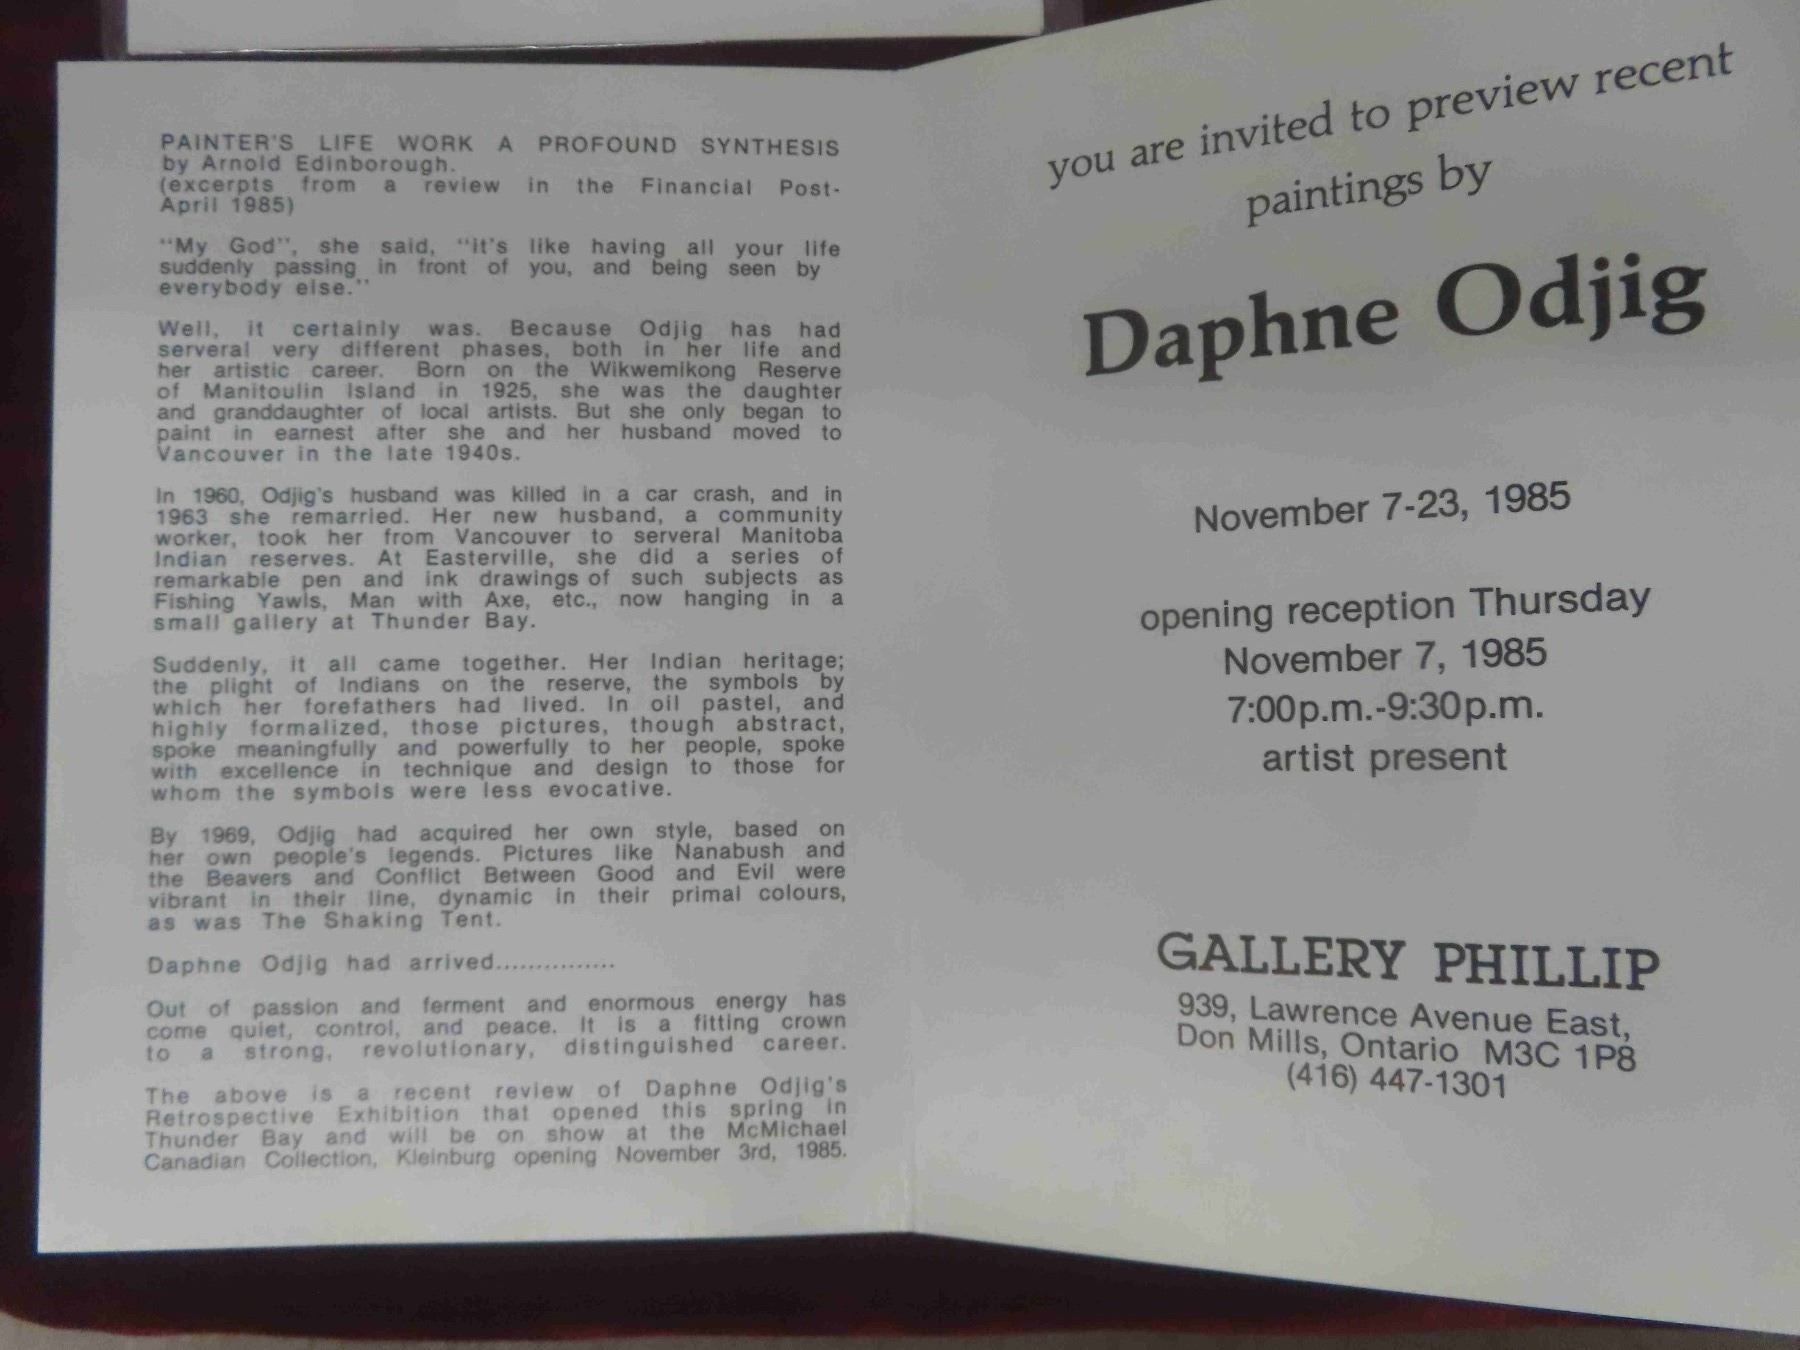 PAINTER'S LIFE WORK A PROFOUND SYNTHESIS
by Arnold Edinborough.
(excerpts from a review in the Financial Post-
April 1985)
"My God", she said, "it's like having all your life
suddenly passing in front of you, and being seen by
everybody else."
Well, it certainly was. Because Odjig has had
serveral very different phases, both in her life and
her artistic career. Born on the Wikwemikong Reserve
of Manitoulin Island in 1925, she was the daughter
and granddaughter of local artists. But she only began to
paint in earnest after she and her husband moved to
Vancouver in the late 1940s.
In 1960, Odjig's husband was killed in a car crash, and in
1963 she remarried. Her new husband, a community
worker, took her from Vancouver to serveral Manitoba
Indian reserves. At Easterville, she did a series of
remarkable pen and ink drawings of such subjects as
Fishing Yawls, Man with Axe, etc., now hanging in a
small gallery at Thunder Bay.
Suddenly, it all came together. Her Indian heritage;
the plight of Indians on the reserve, the symbols by
which her forefathers had lived. In oil pastel, and
highly formalized, those pictures, though abstract,
spoke meaningfully and powerfully to her people, spoke
with excellence in technique and design to those for
whom the symbols were less evocative.
By 1969, Odjig had acquired her own style, based on
her own people's legends. Pictures like Nanabush and
the Beavers and Conflict Between Good and Evil were
vibrant in their line, dynamic in their primal colours,
as was The Shaking Tent.
Daphne Odjig had arrived...............
Out of passion and ferment and enormous energy has
come quiet, control, and peace. It is a fitting crown
to a strong, revolutionary, distinguished career.
The above is a recent review of Daphne Odjig's
Retrospective Exhibition that opened this spring in
Thunder Bay and will be on show at the McMichael
Canadian Collection, Kleinburg opening November 3rd, 1985.
you are invited to preview recent
paintings by
Daphne Odjig
November 7-23, 1985
opening reception Thursday
November 7, 1985
7:00p.m.-9:30p.m.
artist present
GALLERY PHILLIP
939, Lawrence Avenue East,
Don Mills, Ontario M3C 1P8
(416) 447-1301